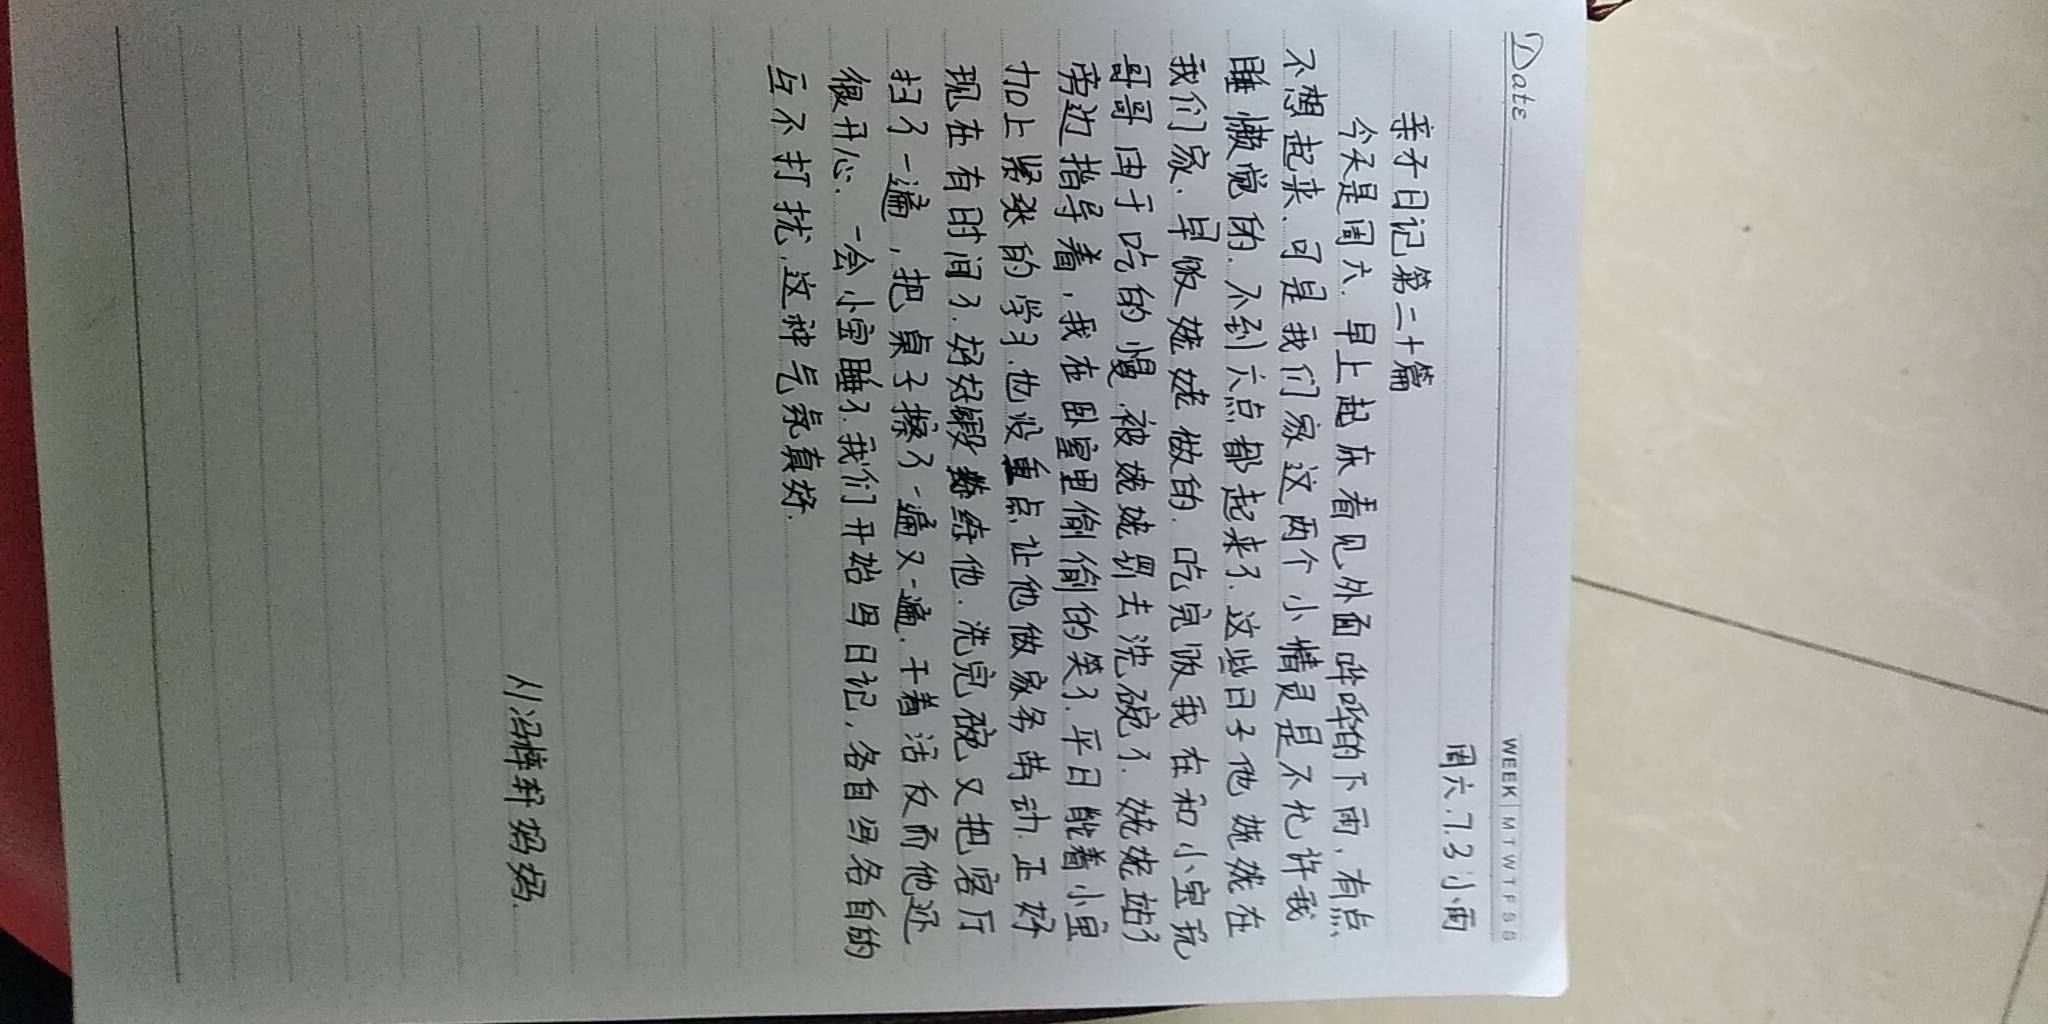 Date
WEEK M T W T F S S
周六.7.3小雨
亲子日记第二十篇
今天是周六.早上起床看见外面哗哗的下雨,有点
不想起来.可是我们家这两个小精灵是不允许我
睡懒觉的.不到六点都起来了.这些日子他姥姥在
我们家.早饭姥姥做的.吃完饭我在和小宝玩
哥哥由于吃的慢.被姥姥罚去洗碗了.姥姥站了
旁边指导着,我在卧室里偷偷的笑了.平日能着小宝
加上紧张的学习.也没重点让他做家务劳动.正好
现在有时间了.好好锻炼他.洗完碗又把客厅
扫了一遍,把桌子擦了一遍又一遍.干着活反而他还
很开心.一会小宝睡了.我们开始写日记,各自写各自的
互不打扰.这种气氛真好.
从冯梓轩妈妈.